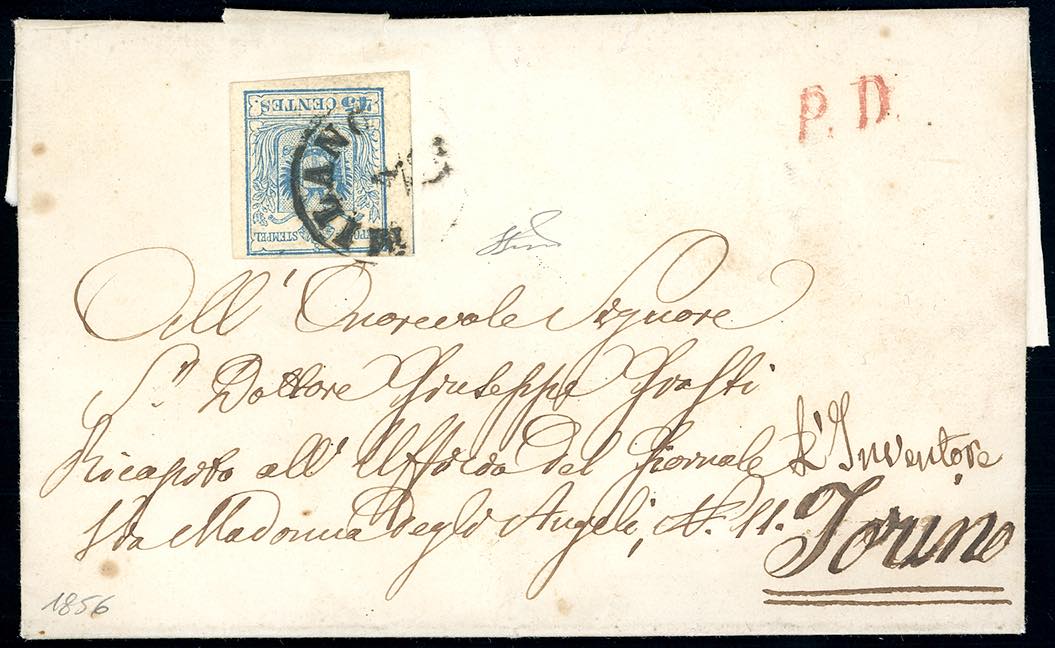 45 CENTES.
KPOST-STEMPEL
MILANO
P. D.
All' Onorevole Signore
S.r Dottore Giuseppe Grasti
Ricapito all' Uffizio del Giornale L'Inventore
Via Madonna degli Angeli, N. 11.
Torino
1856